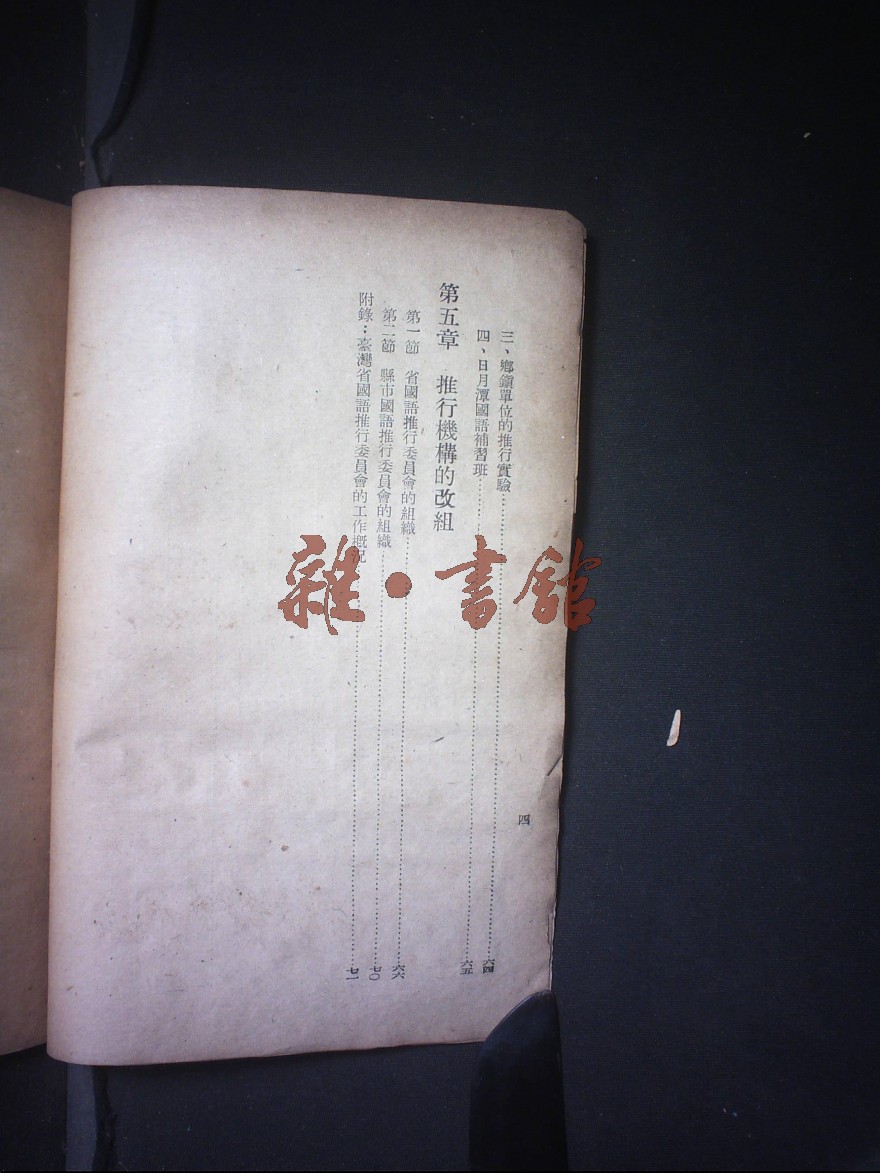 三、鄉鎭單位的推行實驗……六四
四、日月潭國語補習班……六五
第五章 推行機構的改組
第一節 省國語推行委員會的組織……六六
第二節 縣市國語推行委員會的組織……七〇
附錄：臺灣省國語推行委員會的工作概況……七一
四
雜·書館